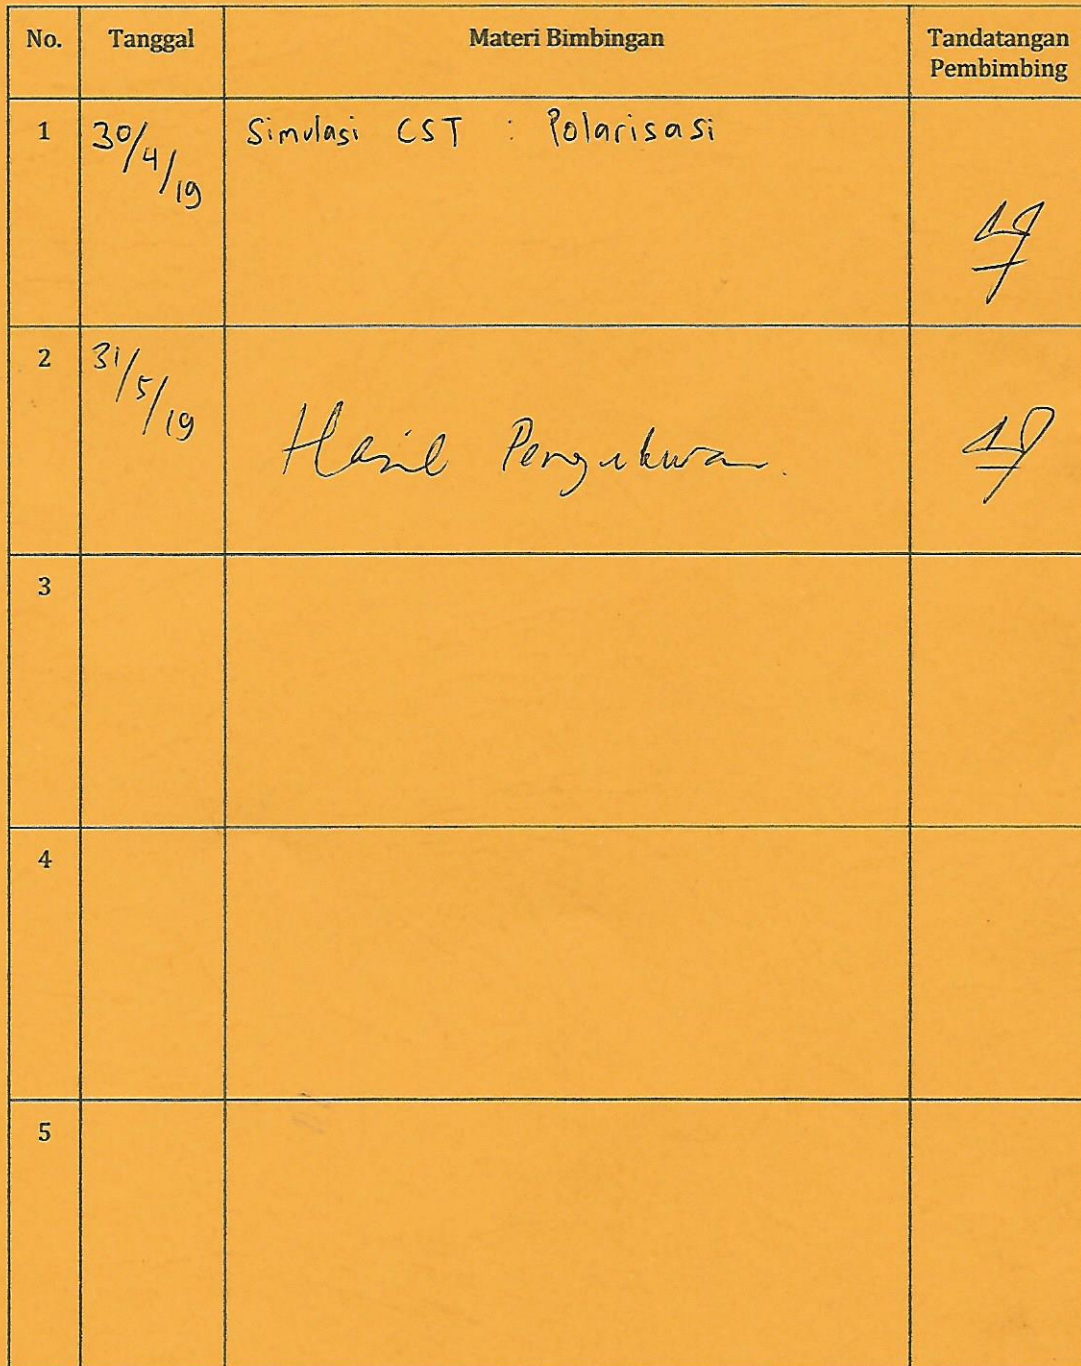 No. Tanggal Materi Bimbingan Tandatangan
Pembimbing
1 30/4/19 Simulasi CST : Polarisasi
2 31/5/19 Hasil Pengukuran.
3
4
5